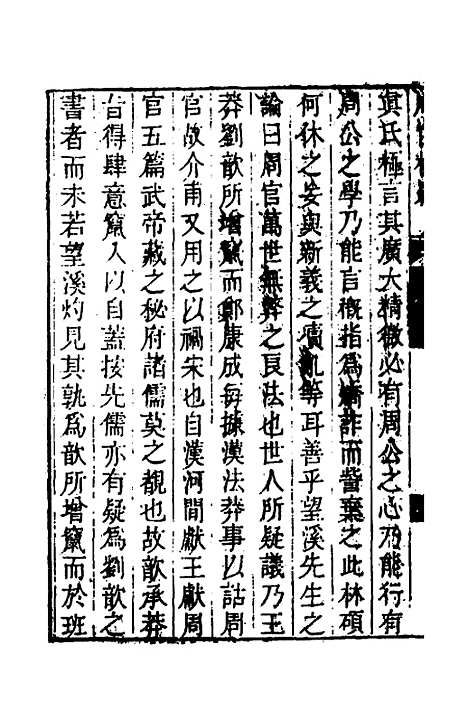 眞氏極言其廣大精微必有周公之心乃能行有
周公之學乃能言概指為矯詐而訾棄之此林碩
何休之妄與新義之獷亂等耳善乎望溪先生之
論曰周官萬世無弊之良法也世人所疑議乃王
莽劉歆所增竄而鄭康成每據漢法莽事以詁周
官故介甫又用之以禍宋也自漢河間獻王獻周
官五篇武帝藏之秘府諸儒莫之覩也故歆承莽
旨得肆意竄入以自蓋按先儒亦有疑為劉歆之
書者而未若望溪灼見其孰為歆所增竄而於班